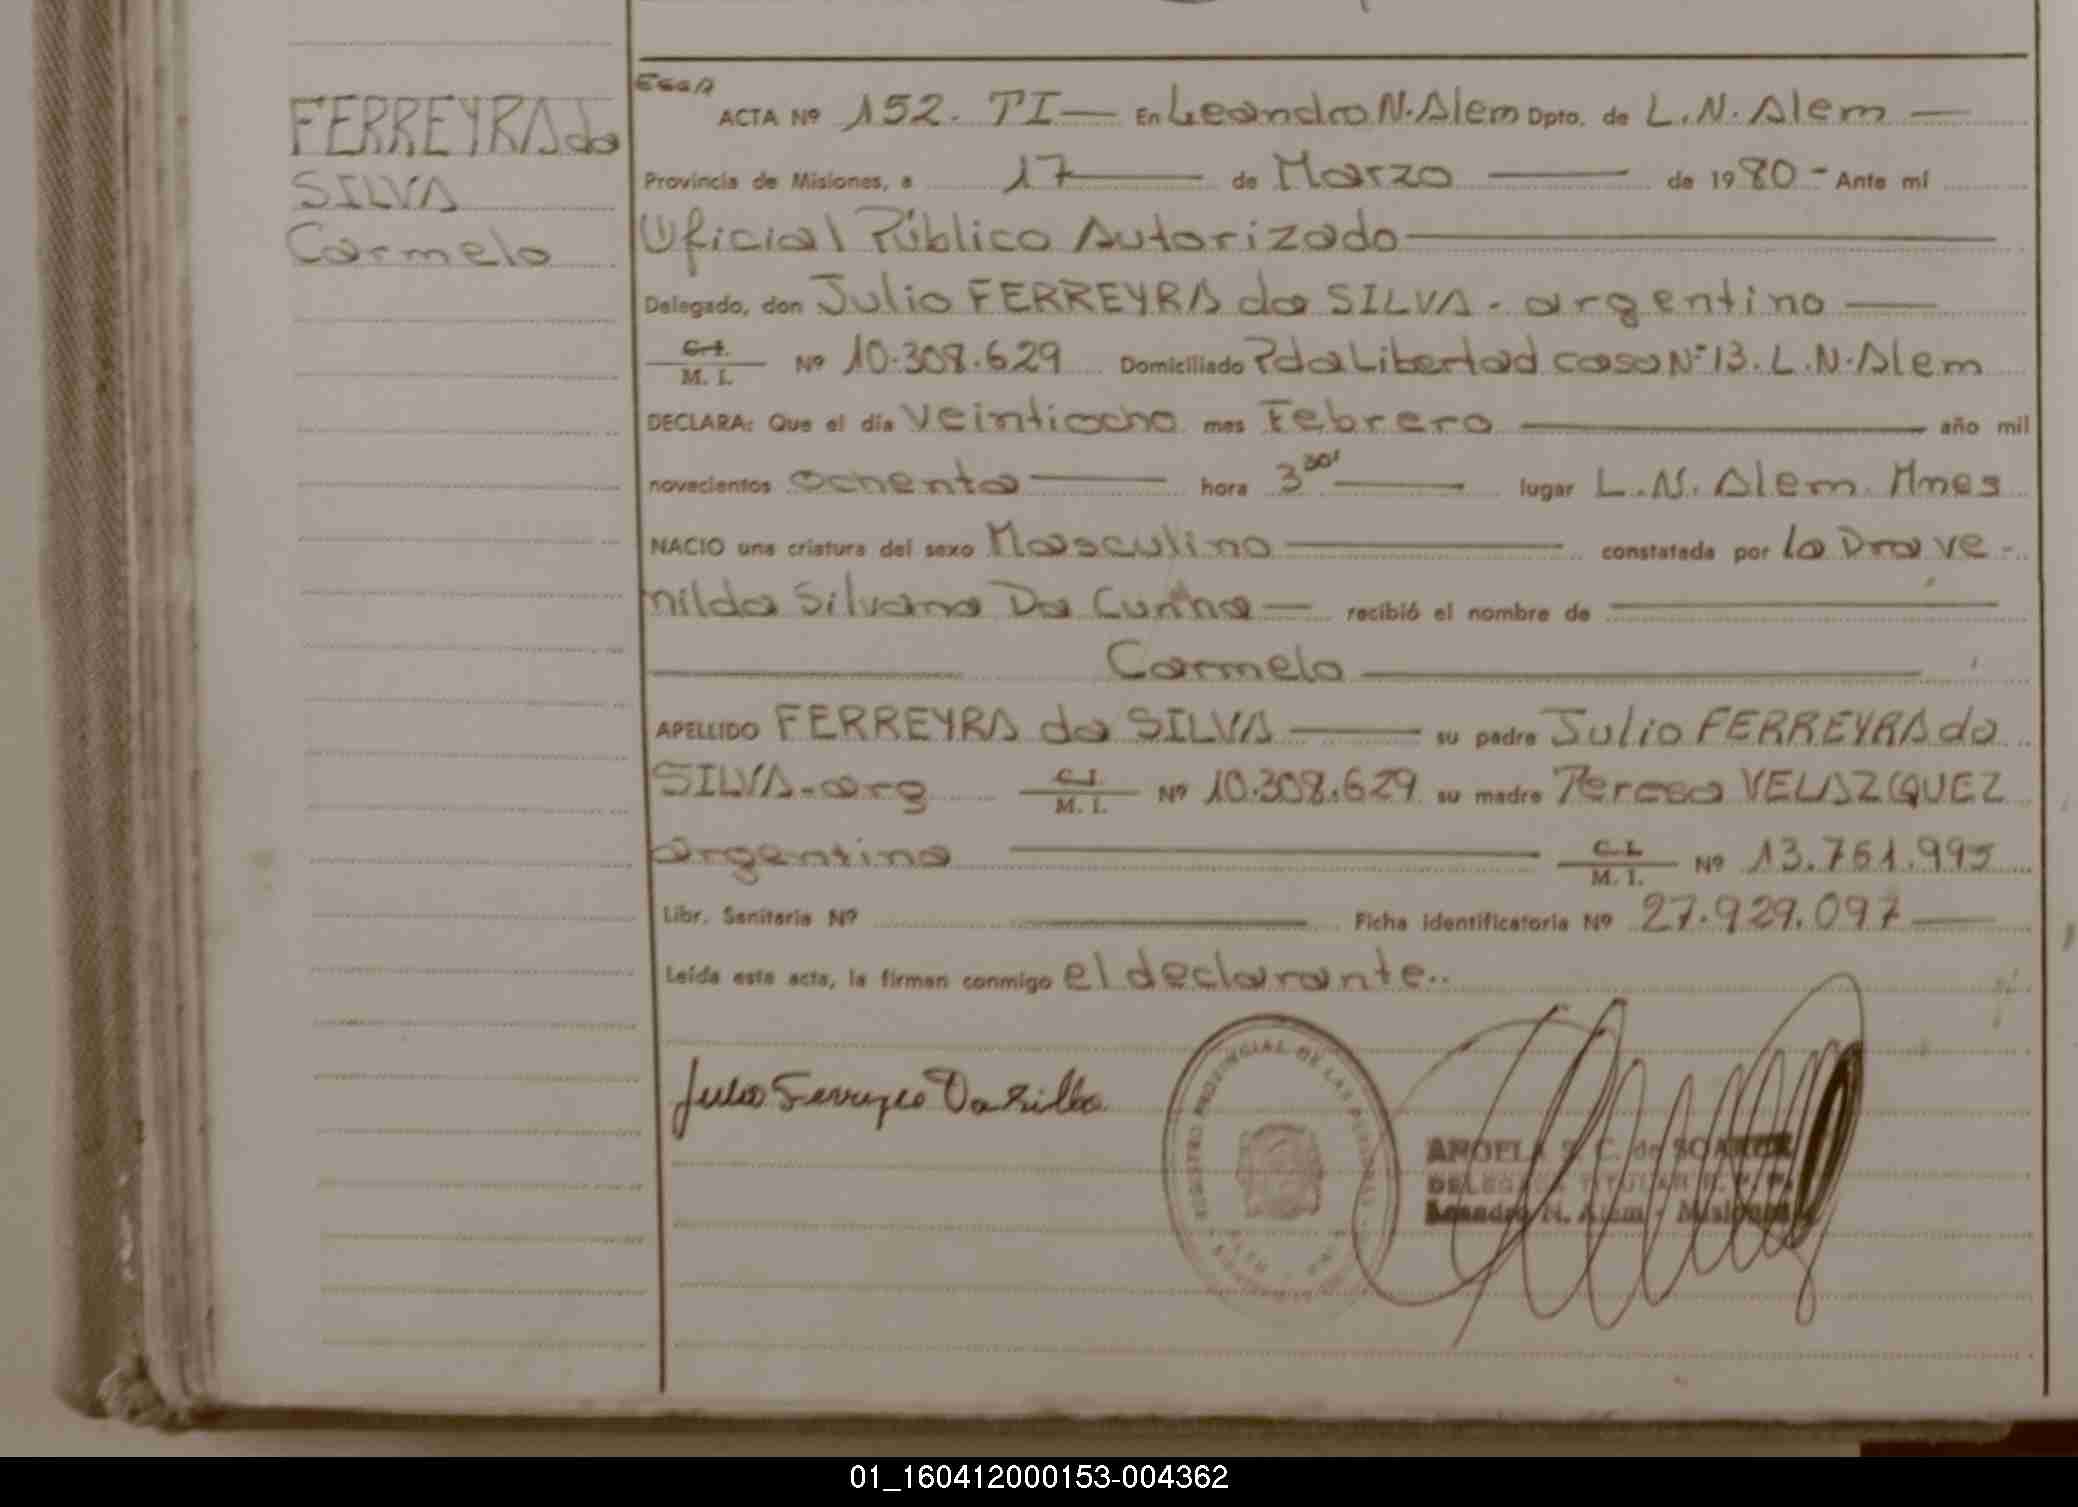 FERREYRA da
SILVA
Carmelo
ACTA Nº 152. TI — En Leandro N. Alem Dpto. de L.N. Alem —
Provincia de Misiones, a 17 — de Marzo — de 1980 - Ante mí
Oficial Público Autorizado —
Delegado, don Julio FERREYRA da SILVA - argentino —
C.I.
M. I. Nº 10.308.629 Domiciliado Pda Libertad casa Nº 13. L.N. Alem
DECLARA: Que el día veintiocho mes Febrero — año mil
novecientos ochenta — hora 3 30' — lugar L.N. Alem. Mnes
NACIO una criatura del sexo Masculino — constatada por la Dra Ve -
nilda Silvana Da Cunha — recibió el nombre de —
— Carmelo —
APELLIDO FERREYRA da SILVA — su padre Julio FERREYRA da
SILVA - arg C.I.
M. I. Nº 10.308.629 su madre Teresa VELAZCQUEZ
argentina — C.I.
M. I. Nº 13.761.995
Libr. Sanitaria Nº — Ficha identificatoria Nº 27.929.097 —
Leída esta acta, la firman conmigo el declarante..
Julio Ferreyra Da Silva
REGISTRO PROVINCIAL DE LAS PERSONAS
ANGELA C. de
DELEGADA TITULAR R. P. P.
Leandro N. Alem - Misiones
01_160412000153-004362